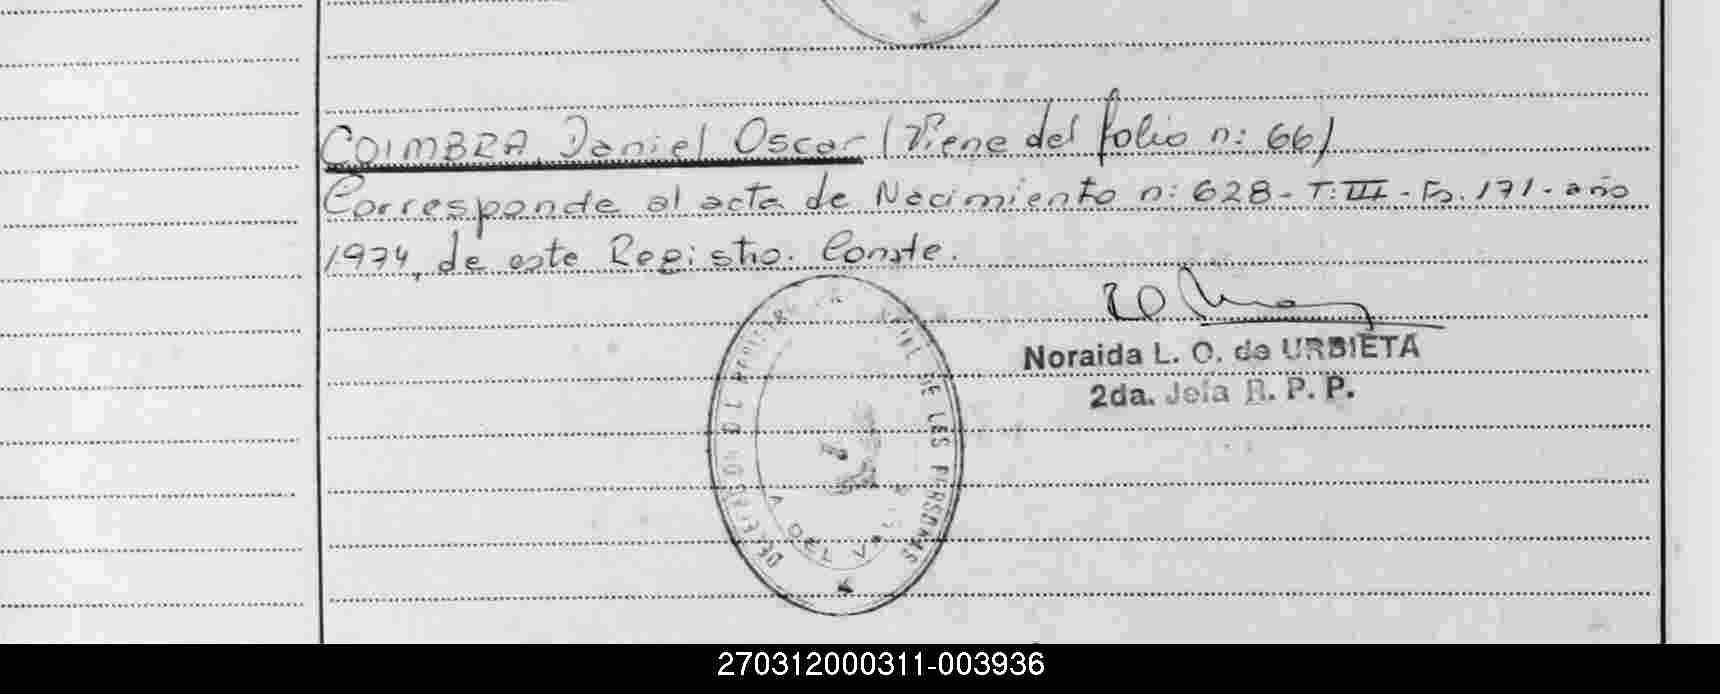 COIMBRA, Daniel Oscar (Viene del folio n: 66)
Corresponde al acta de Nacimiento n: 628 - T: III - Fo. 171 - año
1974, de este Registro. Conste.
Noraida L. O. de URBIETA
2da. Jefa R. P. P.
DEL VAL
DE LES PERSONAS
270312000311-003936